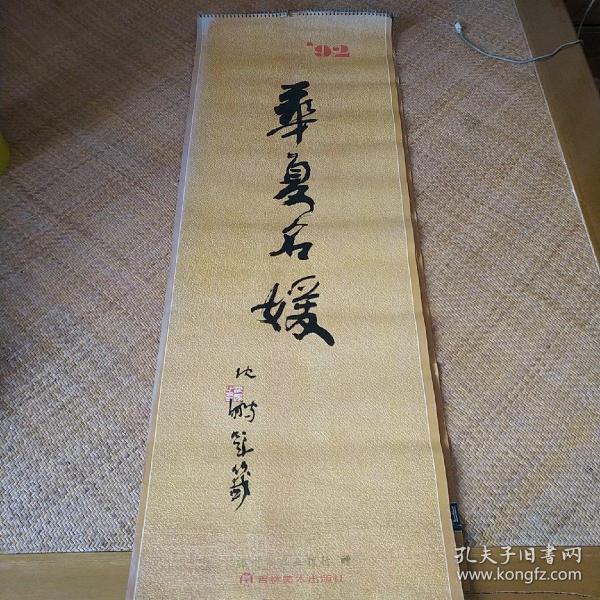 '92
華夏名媛
沈鹏题签
吉林美术出版社
孔夫子旧书网
www.kongfz.com